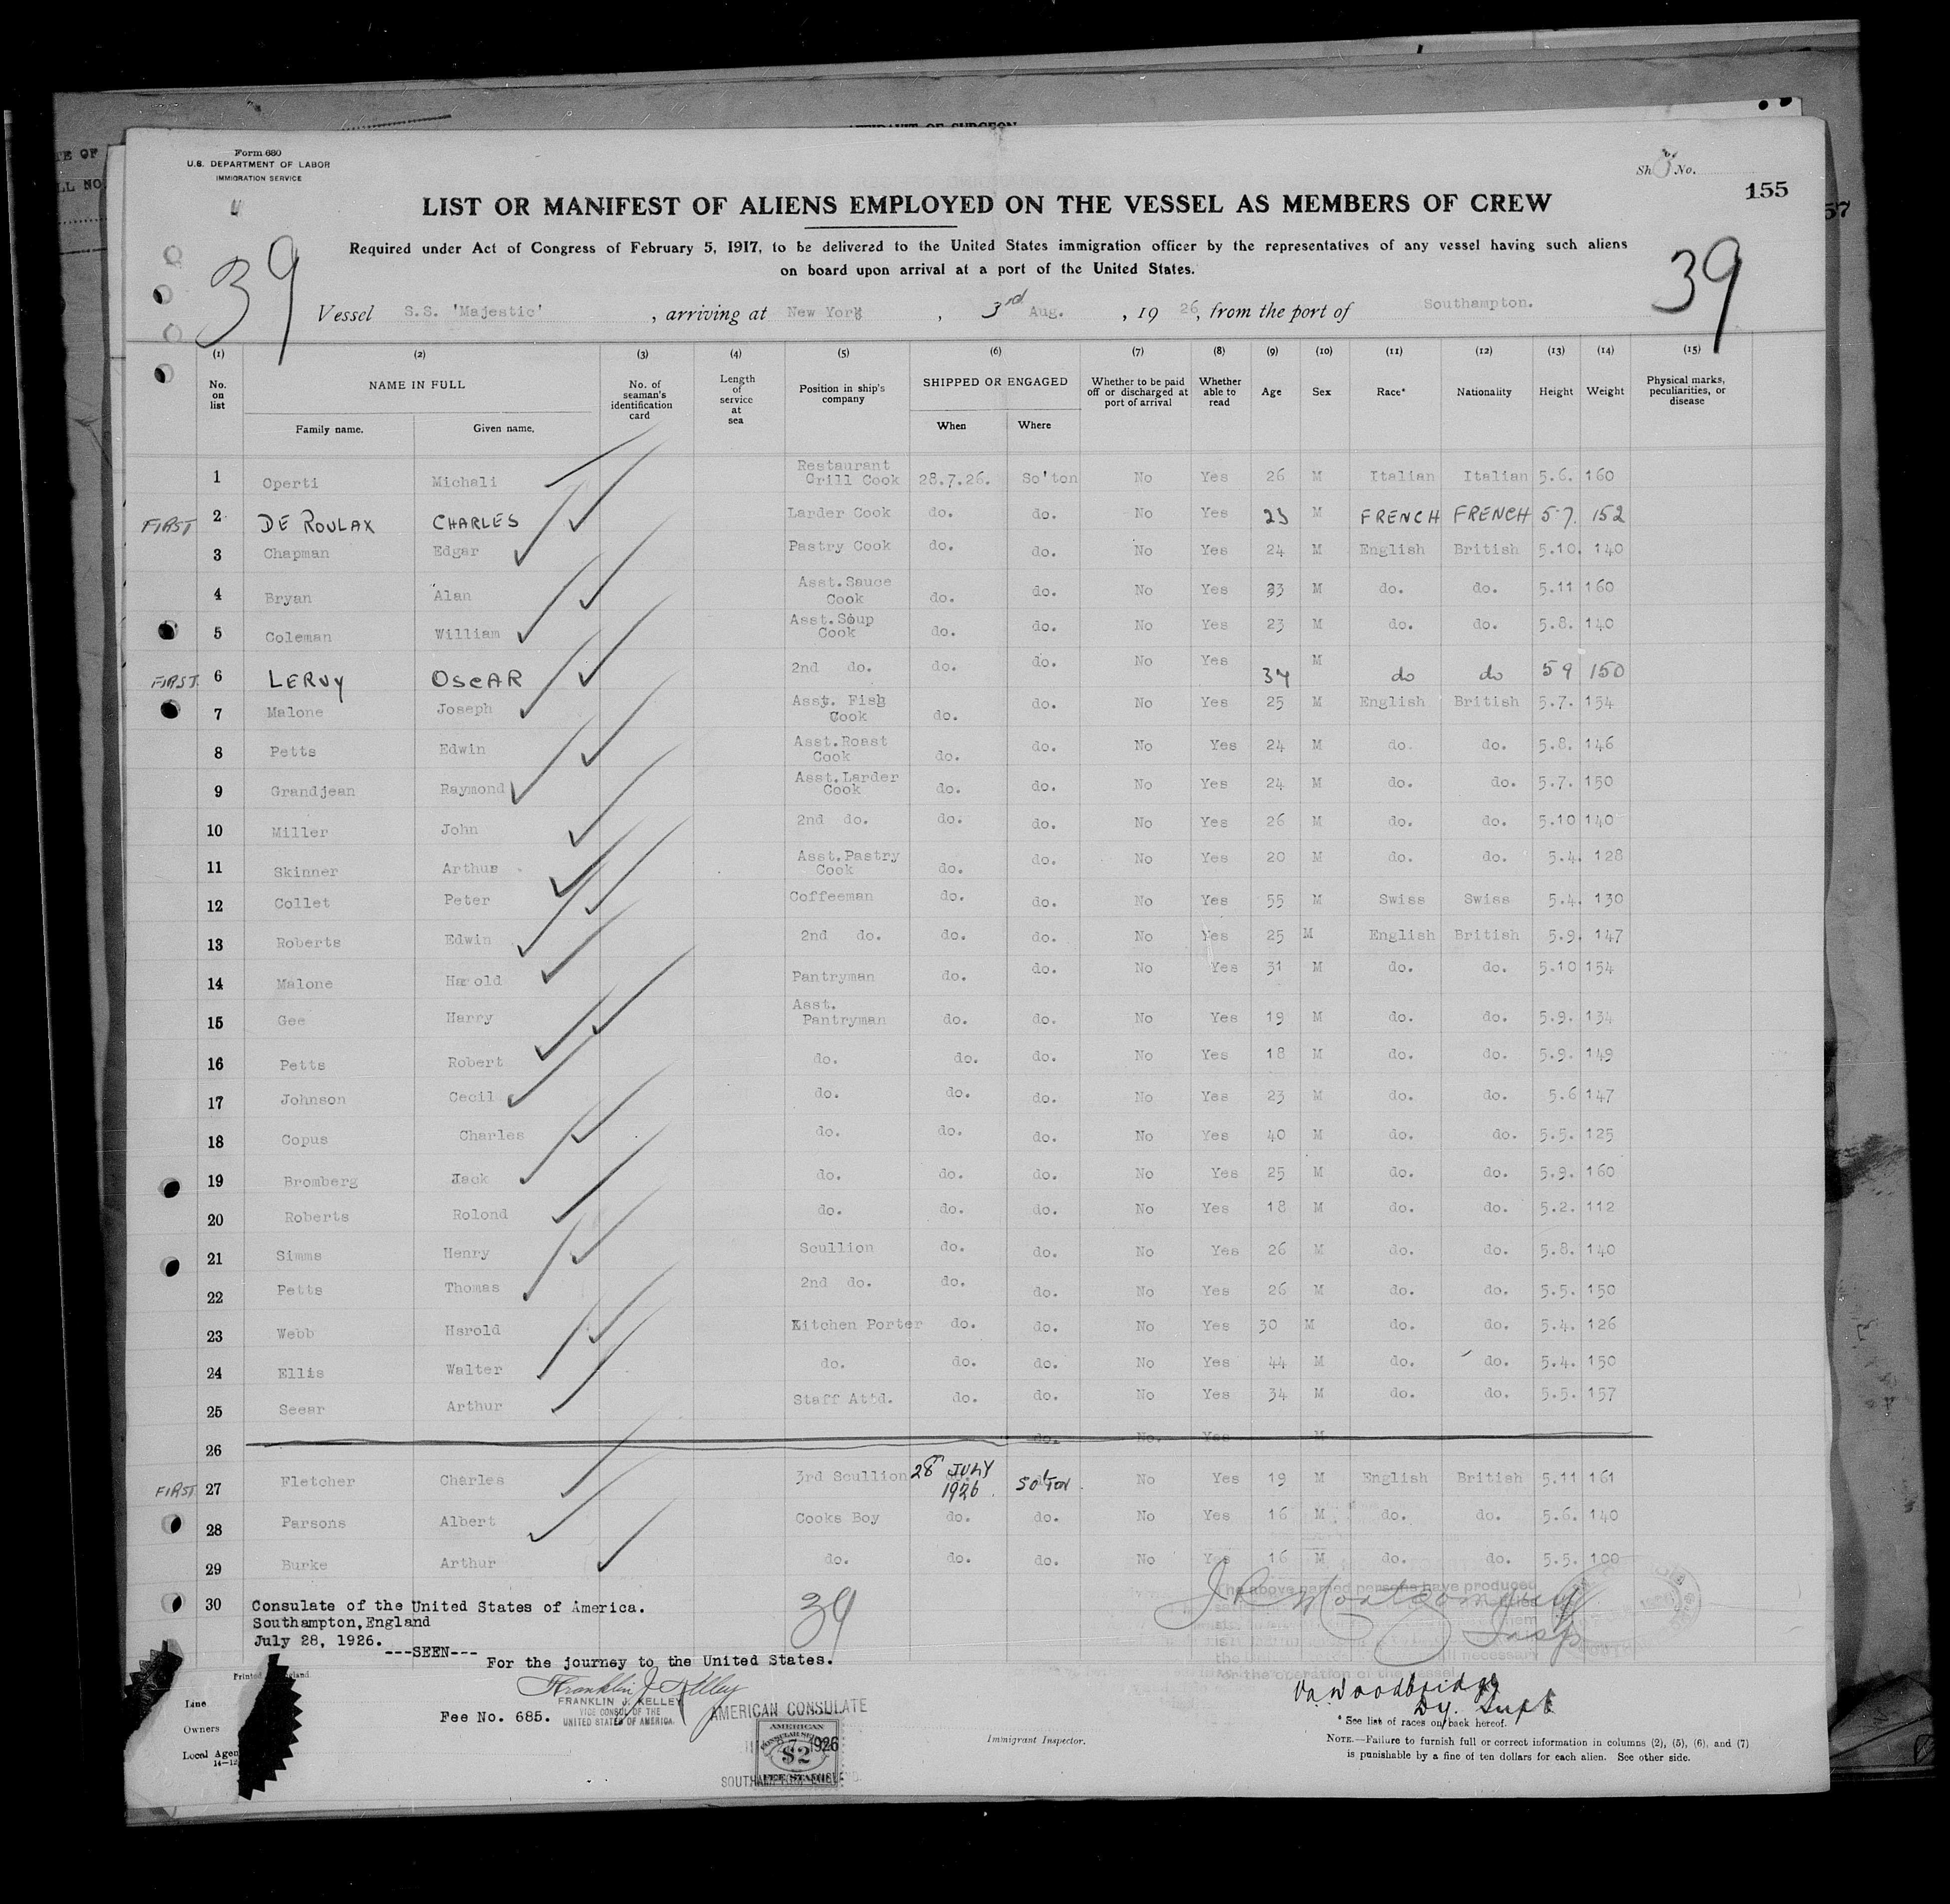 AFFIDAVIT OF SURGEON
Form 680
U.S. DEPARTMENT OF LABOR
IMMIGRATION SERVICE
No.
155
57
LIST OR MANIFEST OF ALIENS EMPLOYED ON THE VESSEL AS MEMBERS OF CREW
Required under Act of Congress of February 5, 1917, to be delivered to the United States immigration officer by the representatives of any vessel having such aliens
on board upon arrival at a port of the United States.
39 39
Vessel S.S. 'Majestic' , arriving at New York , 3rd Aug. , 19 26, from the port of Southampton.
(1) (2) (3) (4) (5) (6) (7) (8) (9) (10) (11) (12) (13) (14) (15)
No. on list NAME IN FULL Family name. Given name. No. of seaman's identification card Length of service at sea Position in ship's company SHIPPED OR ENGAGED When Where Whether to be paid off or discharged at port of arrival Whether able to read Age Sex Race* Nationality Height Weight Physical marks, peculiarities, or disease
1 Operti Michali Restaurant Grill Cook 28.7.26. So'ton No Yes 26 M Italian Italian 5.6. 160
FIRST 2 DE ROULAX CHARLES Larder Cook do. do. No Yes 23 M FRENCH FRENCH 5.7. 152
3 Chapman Edgar Pastry Cook do. do. No Yes 24 M English British 5.10. 140
4 Bryan Alan Asst.Sauce Cook do. do. No Yes 33 M do. do. 5.11 160
5 Coleman William Asst.Soup Cook do. do. No Yes 23 M do. do. 5.8. 140
FIRST 6 LERVY OSCAR 2nd do. do. do. No Yes 34 M do do 5 9 150
7 Malone Joseph Asst. Fish Cook do. do. No Yes 25 M English British 5.7. 154
8 Petts Edwin Asst.Roast Cook do. do. No Yes 24 M do. do. 5.8. 146
9 Grandjean Raymond Asst.Larder Cook do. do. No Yes 24 M do. do. 5.7. 150
10 Miller John 2nd do. do. do. No Yes 26 M do. do. 5.10 140
11 Skinner Arthur Asst.Pastry Cook do. do. No Yes 20 M do. do. 5.4. 128
12 Collet Peter Coffeeman do. do. No Yes 55 M Swiss Swiss 5.4. 130
13 Roberts Edwin 2nd do. do. do. No Yes 25 M English British 5.9. 147
14 Malone Harold Pantryman do. do. No Yes 31 M do. do. 5.10 154
15 Gee Harry Asst. Pantryman do. do. No Yes 19 M do. do. 5.9. 134
16 Petts Robert do. do. do. No Yes 18 M do. do. 5.9. 149
17 Johnson Cecil do. do. do. No Yes 23 M do. do. 5.6 147
18 Copus Charles do. do. do. No Yes 40 M do. do. 5.5. 125
19 Bromberg Jack do. do. do. No Yes 25 M do. do. 5.9. 160
20 Roberts Rolond do. do. do. No Yes 18 M do. do. 5.2. 112
21 Simms Henry Scullion do. do. No Yes 26 M do. do. 5.8. 140
22 Petts Thomas 2nd do. do. do. No Yes 26 M do. do. 5.5. 150
23 Webb Harold Kitchen Porter do. do. No Yes 30 M do. do. 5.4. 126
24 Ellis Walter do. do. do. No Yes 44 M do. do. 5.4. 150
25 Seear Arthur Staff Attd. do. do. No Yes 34 M do. do. 5.5. 157
26 do. No. Yes M
FIRST 27 Fletcher Charles 3rd Scullion 28 JULY 1926. So'ton No Yes 19 M English British 5.11 161
28 Parsons Albert Cooks Boy do. do. No Yes 16 M do. do. 5.6. 140
29 Burke Arthur do. do. do. No Yes 16 M do. do. 5.5. 100
30 Consulate of the United States of America.
Southampton,England
July 28, 1926.
---SEEN---
For the journey to the United States.
39
The above named persons have produced
for the operation of the vessel
J C Montgomery
Insp
Franklin J. Kelley
FRANKLIN J. KELLEY
VICE CONSUL OF THE
UNITED STATES OF AMERICA.
Fee No. 685.
AMERICAN CONSULATE
AMERICAN
$2
FEE STAMP
1926
Woodbridge
Dy. Supt
Line
Owners
Local Agen
Immigrant Inspector.
* See list of races on back hereof.
NOTE.—Failure to furnish full or correct information in columns (2), (5), (6), and (7)
is punishable by a fine of ten dollars for each alien. See other side.